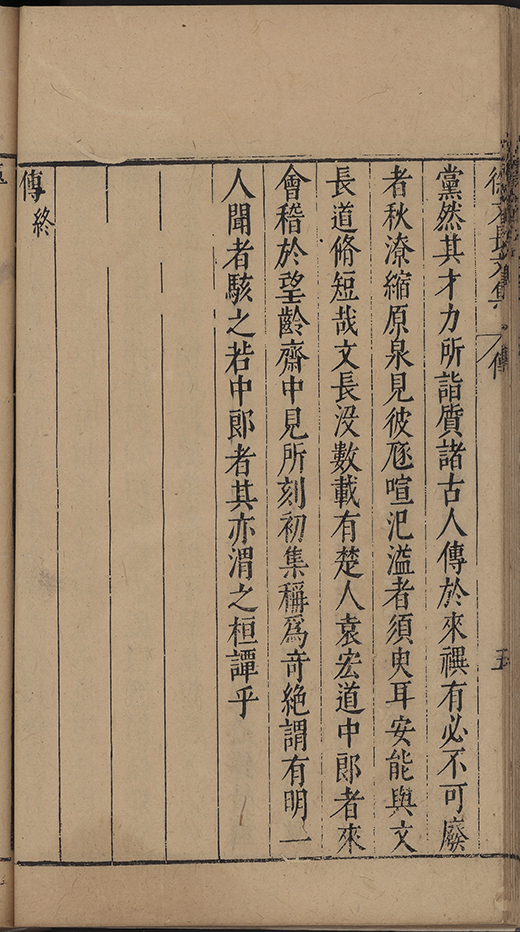 徐文長文集 傳 五
黨然其才力所詣質諸古人傳於來禩有必不可廢
者秋潦縮原泉見彼豗喧汜溢者須臾耳安能與文
長道脩短哉文長没數載有楚人袁宏道中郎者來
會稽於望齡齋中見所刻初集稱爲竒絶謂有明一
人聞者駭之若中郎者其亦渭之桓譚乎
傳終